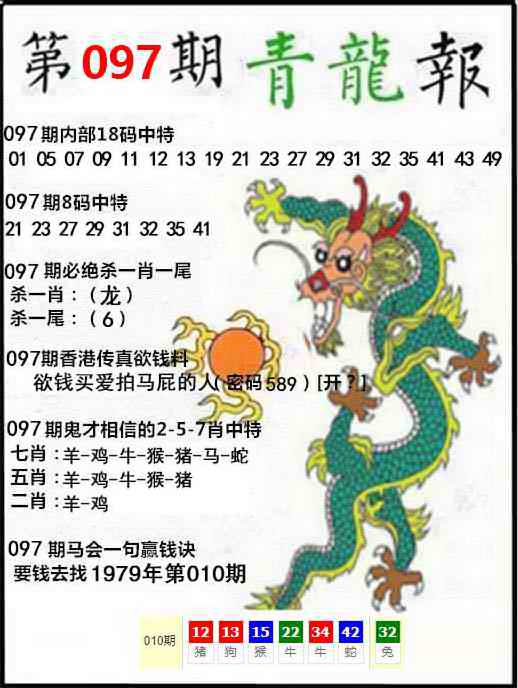 第097期青龍報
097期内部18码中特
01 05 07 09 11 12 13 19 21 23 27 29 31 32 35 41 43 49
097期8码中特
21 23 27 29 31 32 35 41
097 期必绝杀一肖一尾
杀一肖：（龙）
杀一尾：（6）
097期香港传真欲钱料
欲钱买爱拍马屁的人（密码589）[开？]
097期鬼才相信的2-5-7肖中特
七肖：羊-鸡-牛-猴-猪-马-蛇
五肖：羊-鸡-牛-猴-猪
二肖：羊-鸡
097 期马会一句赢钱诀
要钱去找1979年第010期
010期 12 13 15 22 34 42 32
猪 狗 猴 牛 牛 蛇 兔